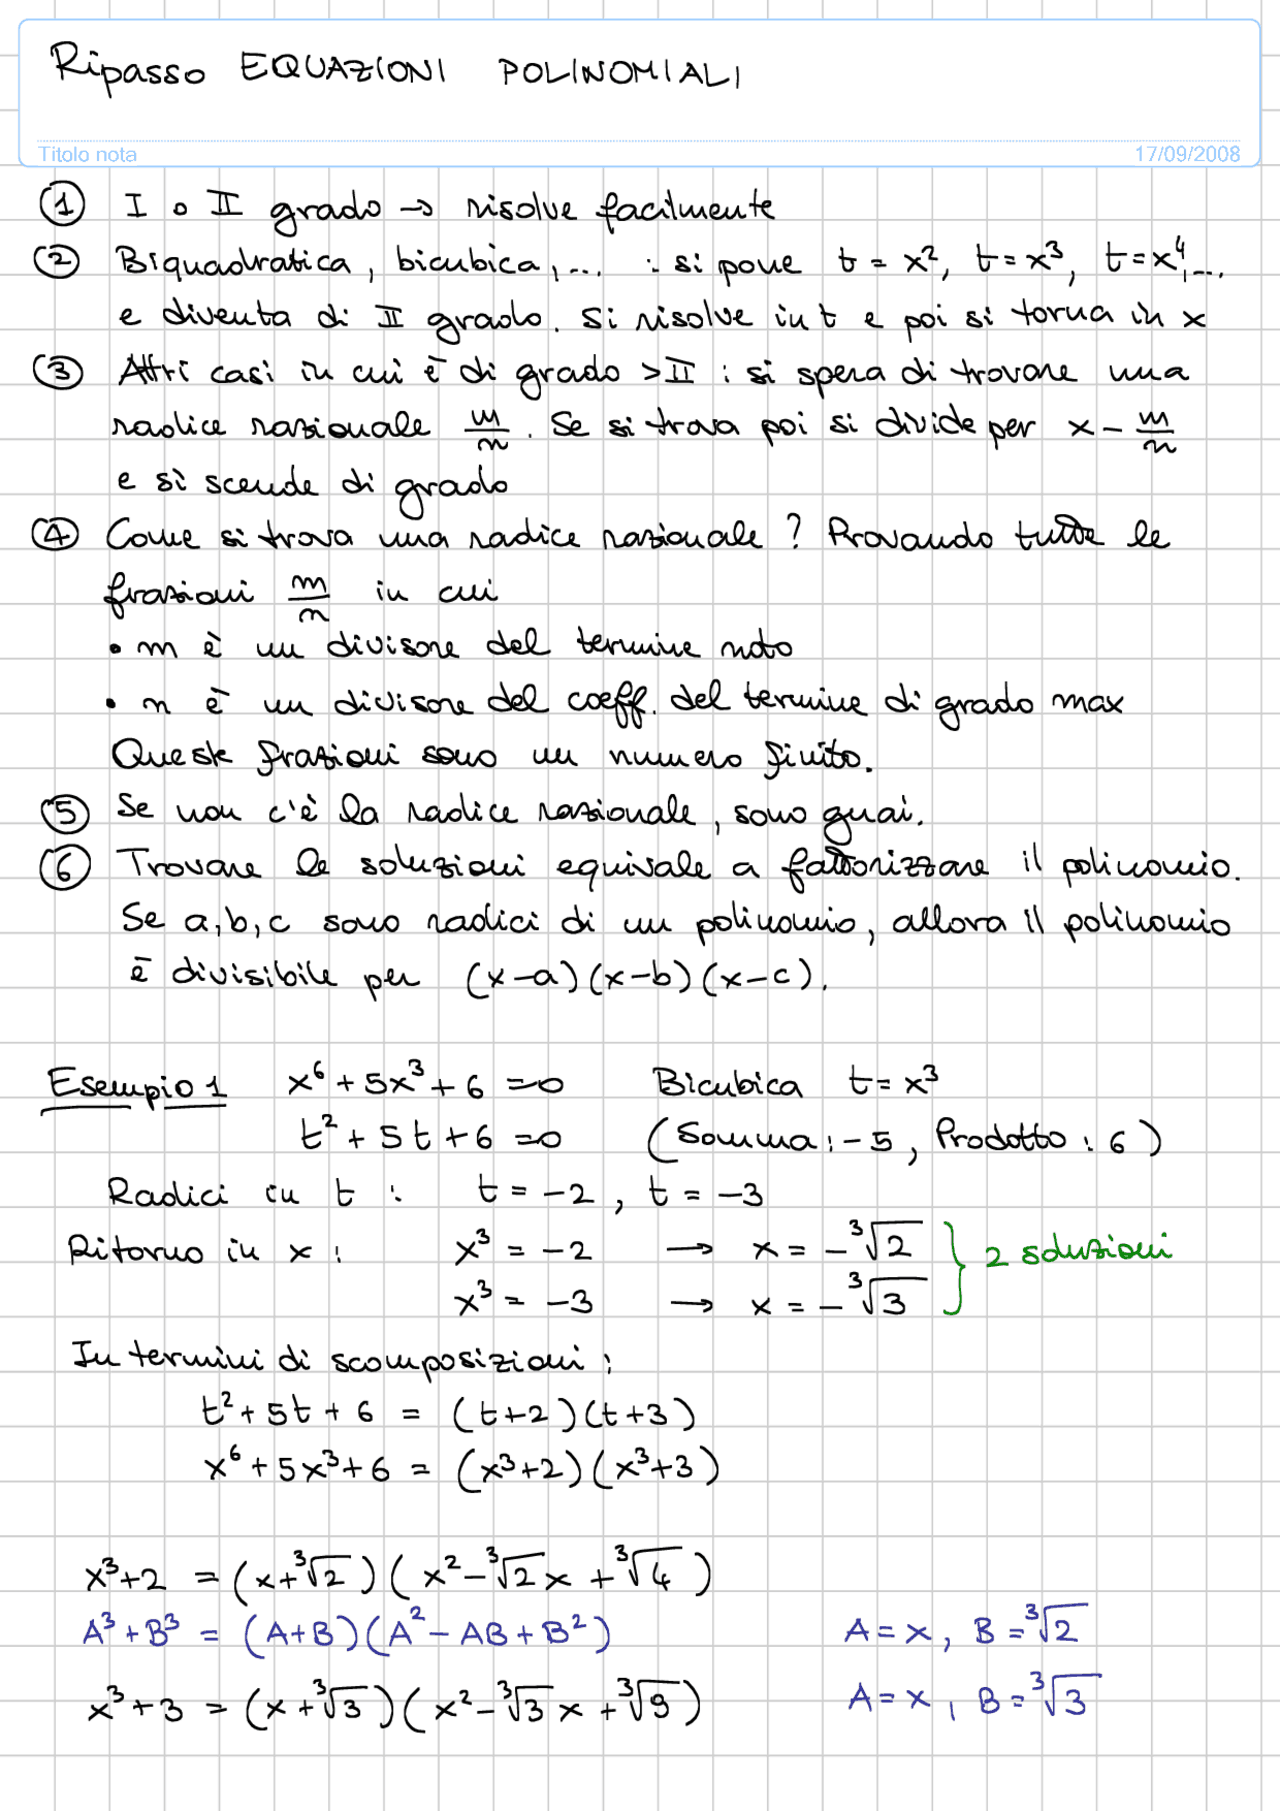 Ripasso EQUAZIONI POLINOMIALI
Titolo nota 17/09/2008
① I o II grado → risolve facilmente
② Biquadratica, bicubica, ... : si pone t = x², t = x³, t = x⁴, ...
e diventa di II grado. Si risolve in t e poi si torna in x
③ Altri casi in cui è di grado > II : si spera di trovare una
radice razionale m/n. Se si trova poi si divide per x - m/n
e si scende di grado
④ Come si trova una radice razionale ? Provando tutte le
frazioni m/n in cui
• m è un divisore del termine noto
• n è un divisore del coeff. del termine di grado max
Queste frazioni sono un numero finito.
⑤ Se non c'è la radice razionale, sono guai.
⑥ Trovare le soluzioni equivale a fattorizzare il polinomio.
Se a, b, c sono radici di un polinomio, allora il polinomio
è divisibile per (x-a)(x-b)(x-c).
Esempio 1 x⁶ + 5x³ + 6 = 0 Bicubica t = x³
t² + 5t + 6 = 0 (Somma : -5, Prodotto : 6)
Radici in t : t = -2, t = -3
Ritorno in x : x³ = -2 → x = -∛2 } 2 soluzioni
x³ = -3 → x = -∛3
In termini di scomposizioni :
t² + 5t + 6 = (t+2)(t+3)
x⁶ + 5x³ + 6 = (x³+2)(x³+3)
x³+2 = (x+∛2)(x² - ∛2 x + ∛4)
A³ + B³ = (A+B)(A² - AB + B²) A = x, B = ∛2
x³ + 3 = (x + ∛3)(x² - ∛3 x + ∛9) A = x, B = ∛3